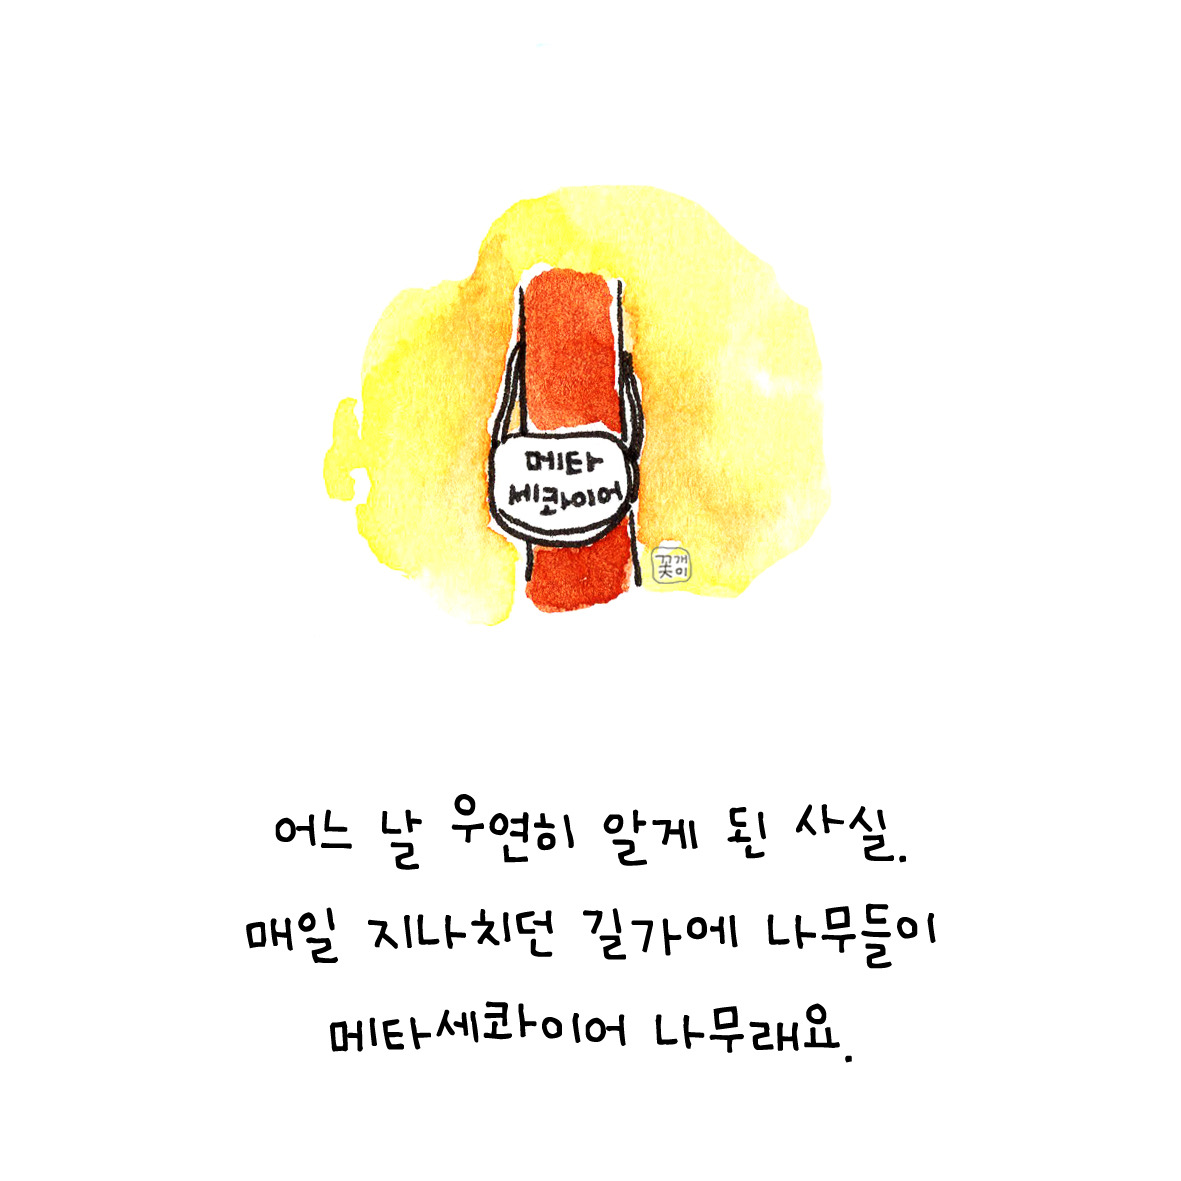 메타
세콰이어
꽃개이
어느 날 우연히 알게 된 사실.
매일 지나치던 길가에 나무들이
메타세콰이어 나무래요.